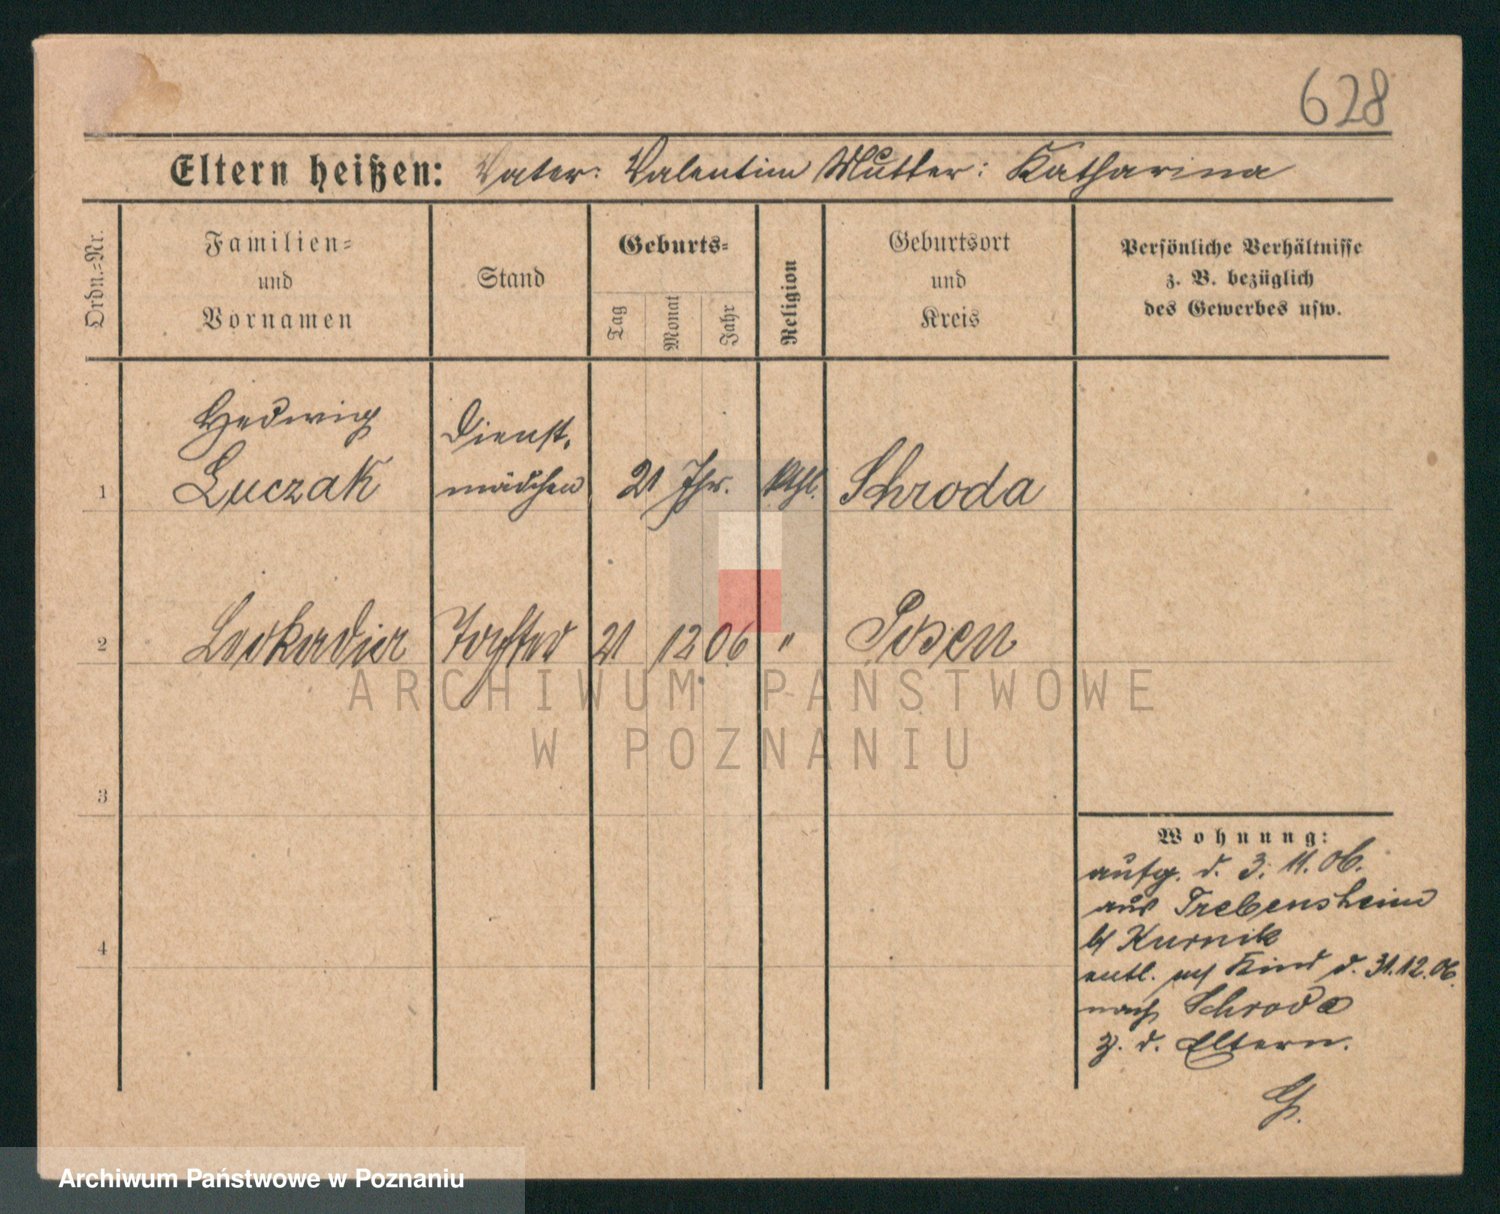 628
Eltern heißen: Vater: Valentin Mutter: Katharina
Ordn.=Nr.
Familien=
und
Vornamen
Stand
Geburts=
Tag
Monat
Jahr
Religion
Geburtsort
und
Kreis
Persönliche Verhältnisse
z. B. bezüglich
des Gewerbes usw.
Hedwig Dienst,
1 Łuczak mädchen 21 Jhr. kthl. Schroda
2 Leokadia Tochter 21 12 06 " Posen
ARCHIWUM PAŃSTWOWE
W POZNANIU
3
4
Wohnung:
aufg. d. 3. 11. 06.
aus Trebensheim
b/ Kurnik
entl. m/ Kind d. 31.12.06.
nach Schroda
z. d. Eltern.
Archiwum Państwowe w Poznaniu